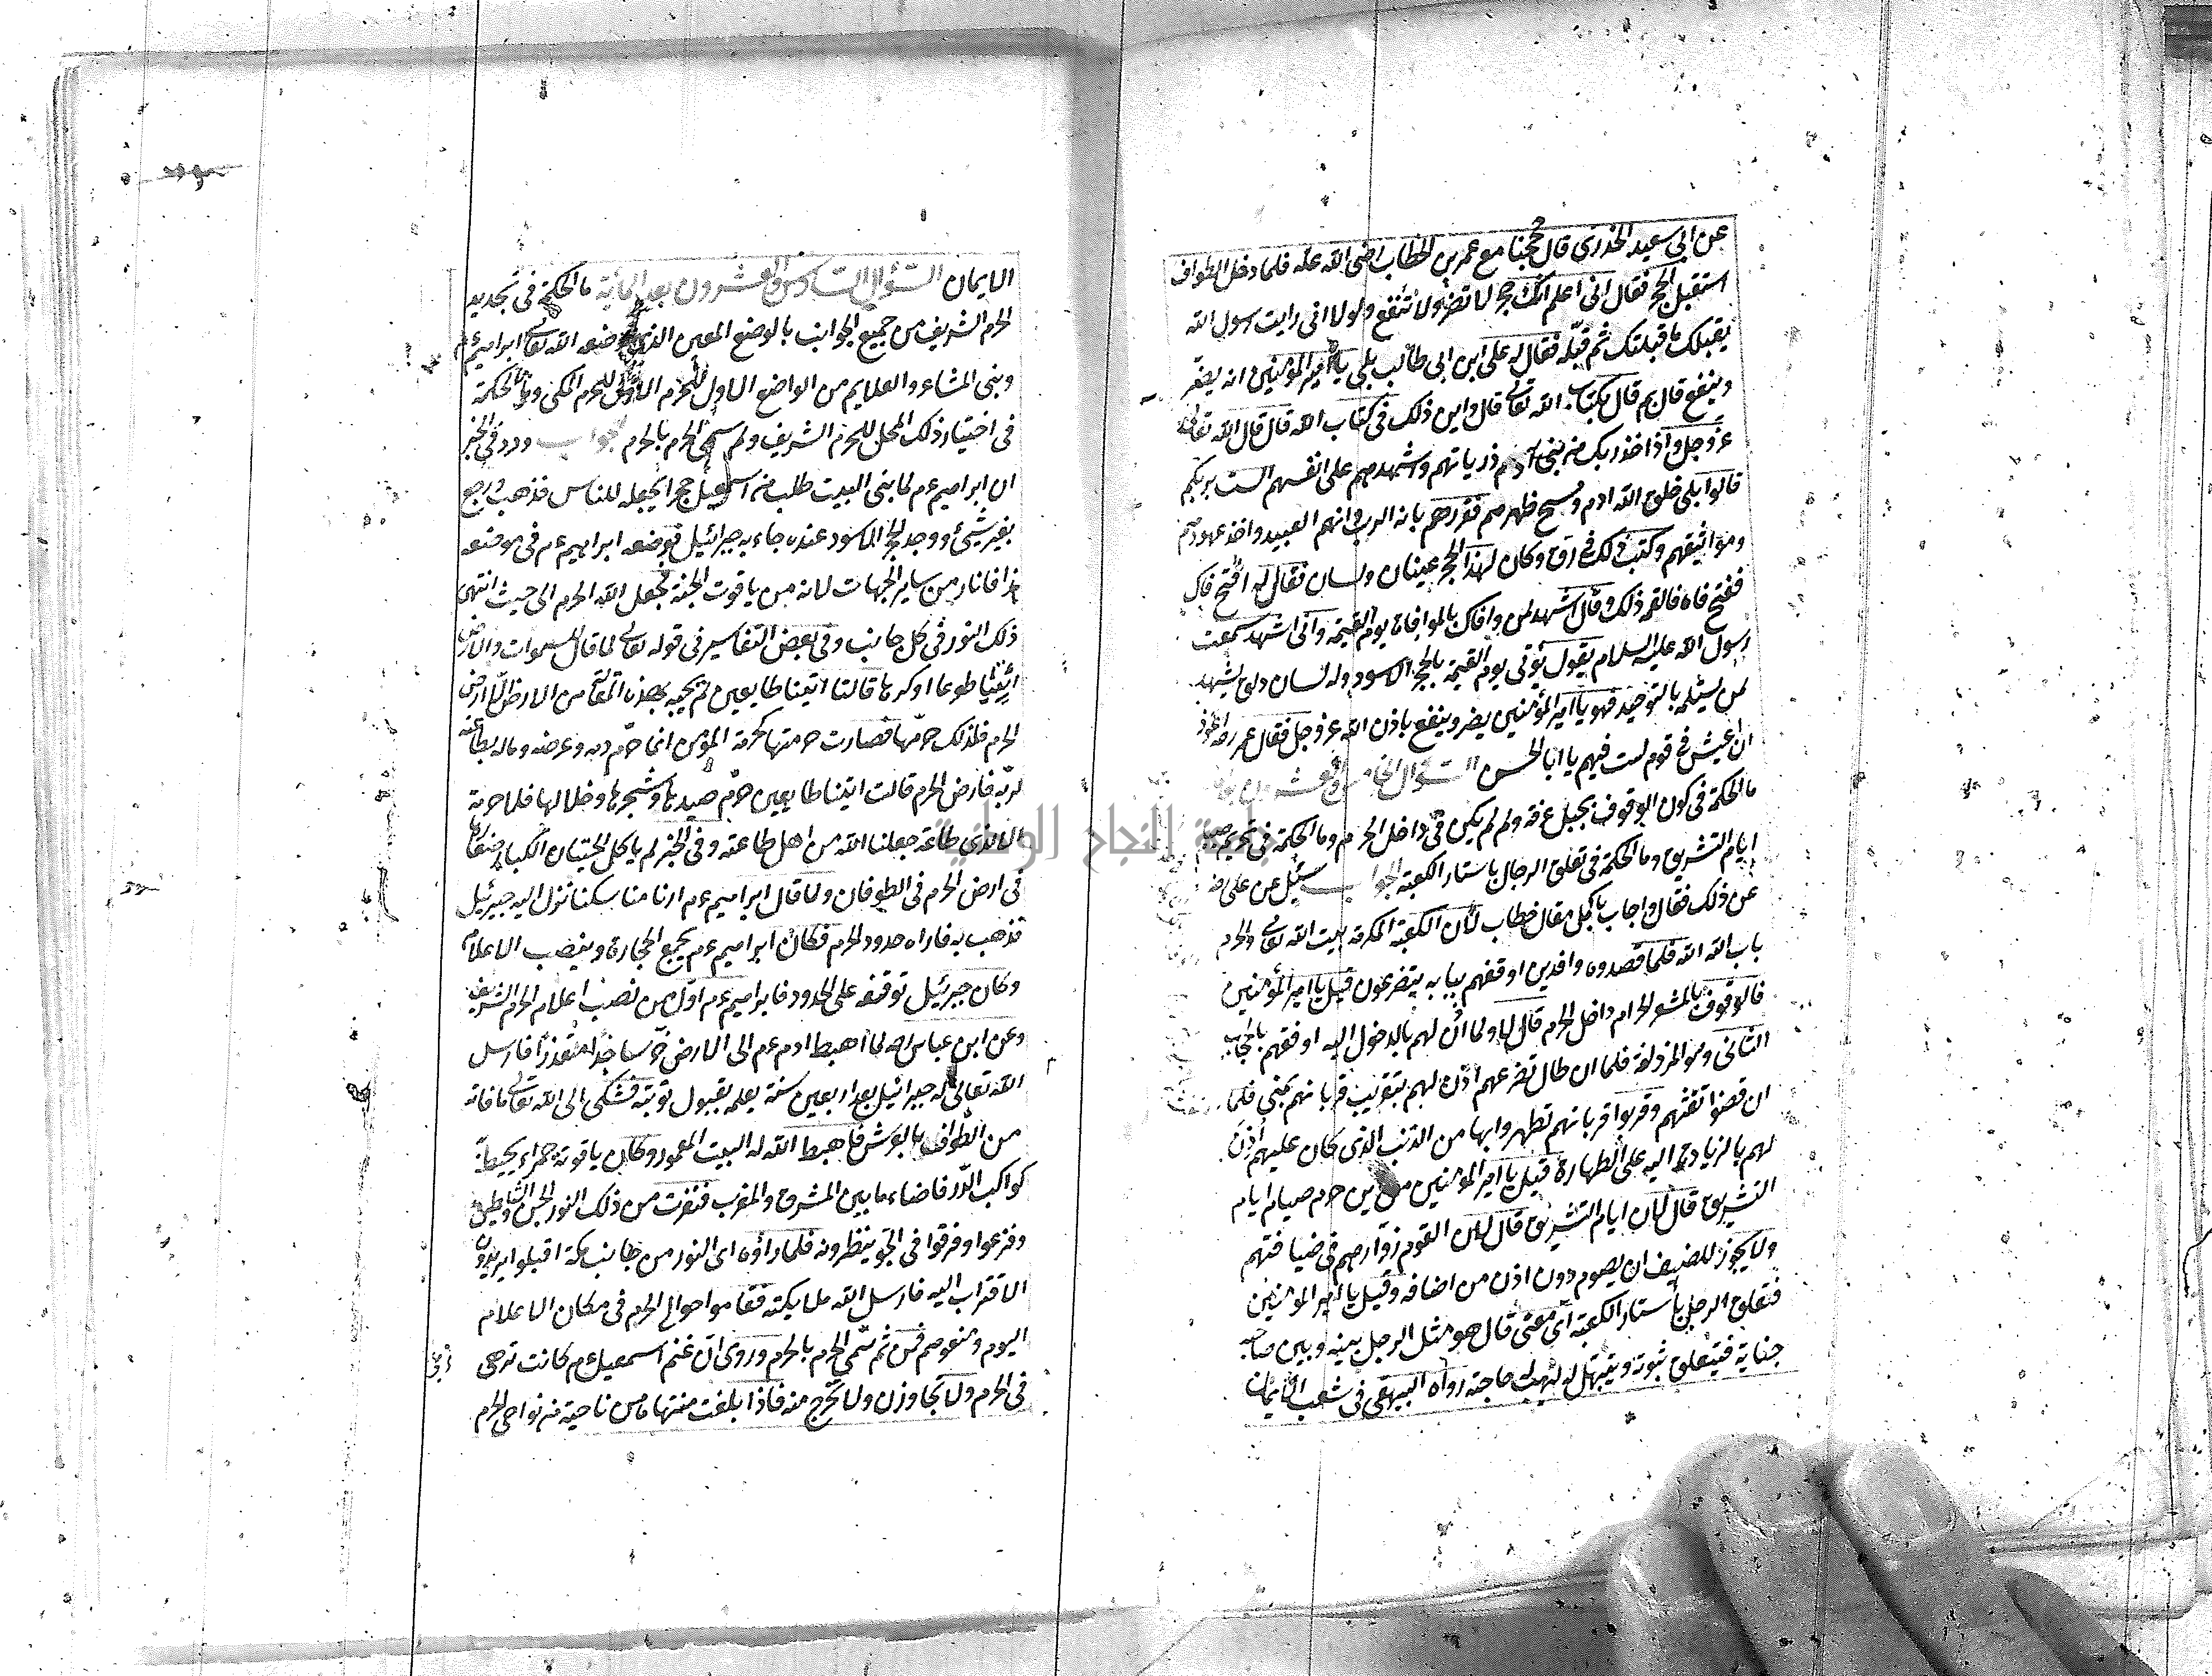 عن ابي سعيد الخدري قال حججنا مع عمر بن الخطاب رضي الله عنه فلما دخل الطواف
استقبل الحجر فقال اني اعلم انك حجر لا تضر ولا تنفع ولولا اني رايت رسول الله
يقبلك ما قبلتك ثم قبّله فقال له علي ابن ابي طالب بلى يا امير المؤمنين انه يضر
وينفع قال بم قال بكتاب الله تعالى قال واين ذلك في كتاب الله قال قال الله تعالى
عز وجل واذا اخذ ربك من بني آدم ذرياتهم واشهدهم على انفسهم الست بربكم
قالوا بلى خلق الله ادم ومسح ظهرهم فقررهم بانه الرب وانهم العبيد واخذ عهودهم
ومواثيقهم وكتب ذلك في رق وكان لهذا الحجر عينان ولسان فقال له افتح فاك
ففتح فاه فالقمه ذلك وقال اشهد لمن وافاك بالموافاة يوم القيمة واني اشهد سمعت
رسول الله عليه السلام يقول يؤتى يوم القيمة بالحجر الاسود وله لسان ذلق يشهد
لمن يستلمه بالتوحيد فهو يا امير المؤمنين يضر وينفع باذن الله عز وجل فقال عمر رضه اعوذ
ان اعيش في قوم لست فيهم يا ابا الحسن السؤال الخامس والعشرون
ما الحكمة في كون الوقوف بجبل عرفة ولم لم يكن في داخل الحرم وما الحكمة في تحريم صيام
ايام التشريق وما الحكمة في تعلق الرجال باستار الكعبة الجواب سئل عن علي رضه
عن ذلك فقال واجاب باكمل مقال خطاب لان الكعبة المكرمة بيت الله تعالى والحرم
باب الله الله فلما قصدوه وافدين اوقفهم ببابه يتضرعون قيل يا امير المؤمنين
فالوقوف بالمشعر الحرام داخل الحرم قال لما ولما اذن لهم بالدخول اليه اوقفهم بالحجاب
الثاني وهو المزدلفة فلما ان طال تضرعهم اذن لهم بتقريب قربانهم بمنى فلما
ان قضوا تفثهم وقربوا قربانهم تطهروا بها من الذنب الذي كان عليهم اذن
لهم بالزيادة اليه على الطهارة قيل يا امير المؤمنين من اين حرم صيام ايام
التشريق قال لان ايام التشريق قال لان القوم زوارهم في ضيافتهم
ولا يجوز للضيف ان يصوم دون اذن من اضافه وقيل يا امير المؤمنين
فتعلق الرجل باستار الكعبة اي معنى قال هو مثل الرجل بينه وبين صاحبه
جناية فيتعلق بثوبه ويتبهل له ليهب حاجته رواه البيهقي في شعب الايمان
الايمان السؤال السادس والعشرون بعد المأية ما الحكمة في تجديد
الحرم الشريف من جميع الجوانب بالوضع المعين الذي وضعه الله تعالى ابراهيم عم
وبنى المشاعر والعلايم من الواضع الاول للحرم الاول للحرم المكي وما الحكمة
في اختيار ذلك المحل للحرم الشريف ولم سمي الحرم بالحرم الجواب ورد في الخبر
ان ابراهيم عم لما بنى البيت طلب من اسمعيل حجرا يجعله للناس فذهب ورجع
بغير شيئ ووجد الحجر الاسود عنده جاء به جبرائيل فوضعه ابراهيم عم في موضعه
هذا فانار من ساير الجهات لانه من ياقوت الجنة فجعل الله الحرم الى حيث انتهى
ذلك النور في كل جانب وفي بعض التفاسير في قوله تعالى لما قال للسموات والارض
ائتيا طوعا او كرها قالتا اتينا طايعين لم يجبه بهذه المقالة من الارض الا ارض
الحرم فلذلك حرمها فصارت حرمتها كحرمة المؤمن انما حرم دمه وعرضه وماله بطاعته
لربه فارض الحرم قالت اتينا طايعين حرم صيدها وشجرها وخلالها فلا حرمة
الا لذي طاعة جعلنا الله من اهل طاعته وفي الخبر لم ياكل الحيتان الكبار صغارها
في ارض الحرم في الطوفان ولما قال ابراهيم عم ارنا مناسكنا نزل اليه جبرئيل
فذهب به فاراه حدود الحرم فكان ابراهيم عم يجمع الحجارة وينصب الاعلام
وكان جبرئيل توقفه على الحدود فابراهيم عم اول من نصب اعلام الحرم الشريف
وعن ابن عباس رضه لما اهبط ادم عم الى الارض خر ساجدا معتذرا فارسل
الله تعالى له جبرائيل بعد اربعين سنة يعلمه بقبول توبته فشكى الى الله تعالى ما فاته
من الطواف بالعرش فاهبط الله له البيت المعمور وكان ياقوتة حمراء يحيط
كواكب الدر فاضاء ما بين المشرق والمغرب فنفرت من ذلك النور الجن والشياطين
وفزعوا وفرقوا في الجو ينظرونه فلما راؤه اي النور من جانب مكة اقبلوا يريدون
الاقتراب اليه فارسل الله ملايكته فقاموا حوالي الحرم في مكان الاعلام
اليوم ومنعوهم فمن ثم سمي الحرم بالحرم وروي ان غنم اسمعيل عم كانت ترعى
في الحرم ولا تجاوزن ولا تخرج منه فاذا بلغت منتهاه من ناحية من نواحي الحرم
جامعة النجاح الوطنية